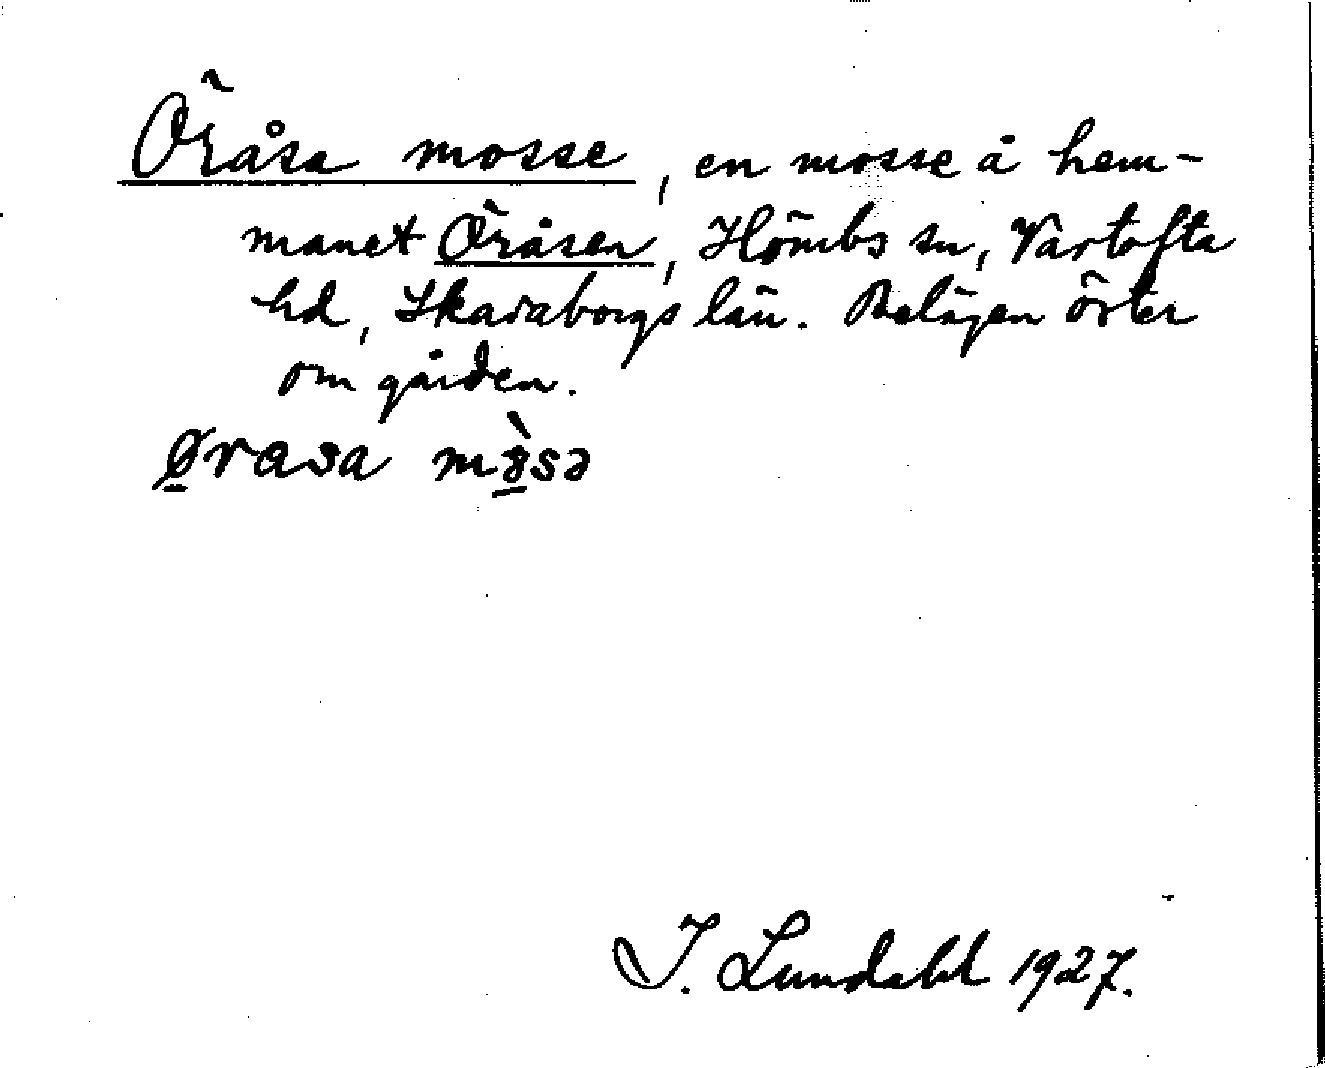 Öråsa mosse, en mosse å hem-
manet Öråsen, Hömbs sn, Vartofta
hd, Skaraborgs län. Belägen öster
om gården.
Ørasa
I. Lundahl 1927.